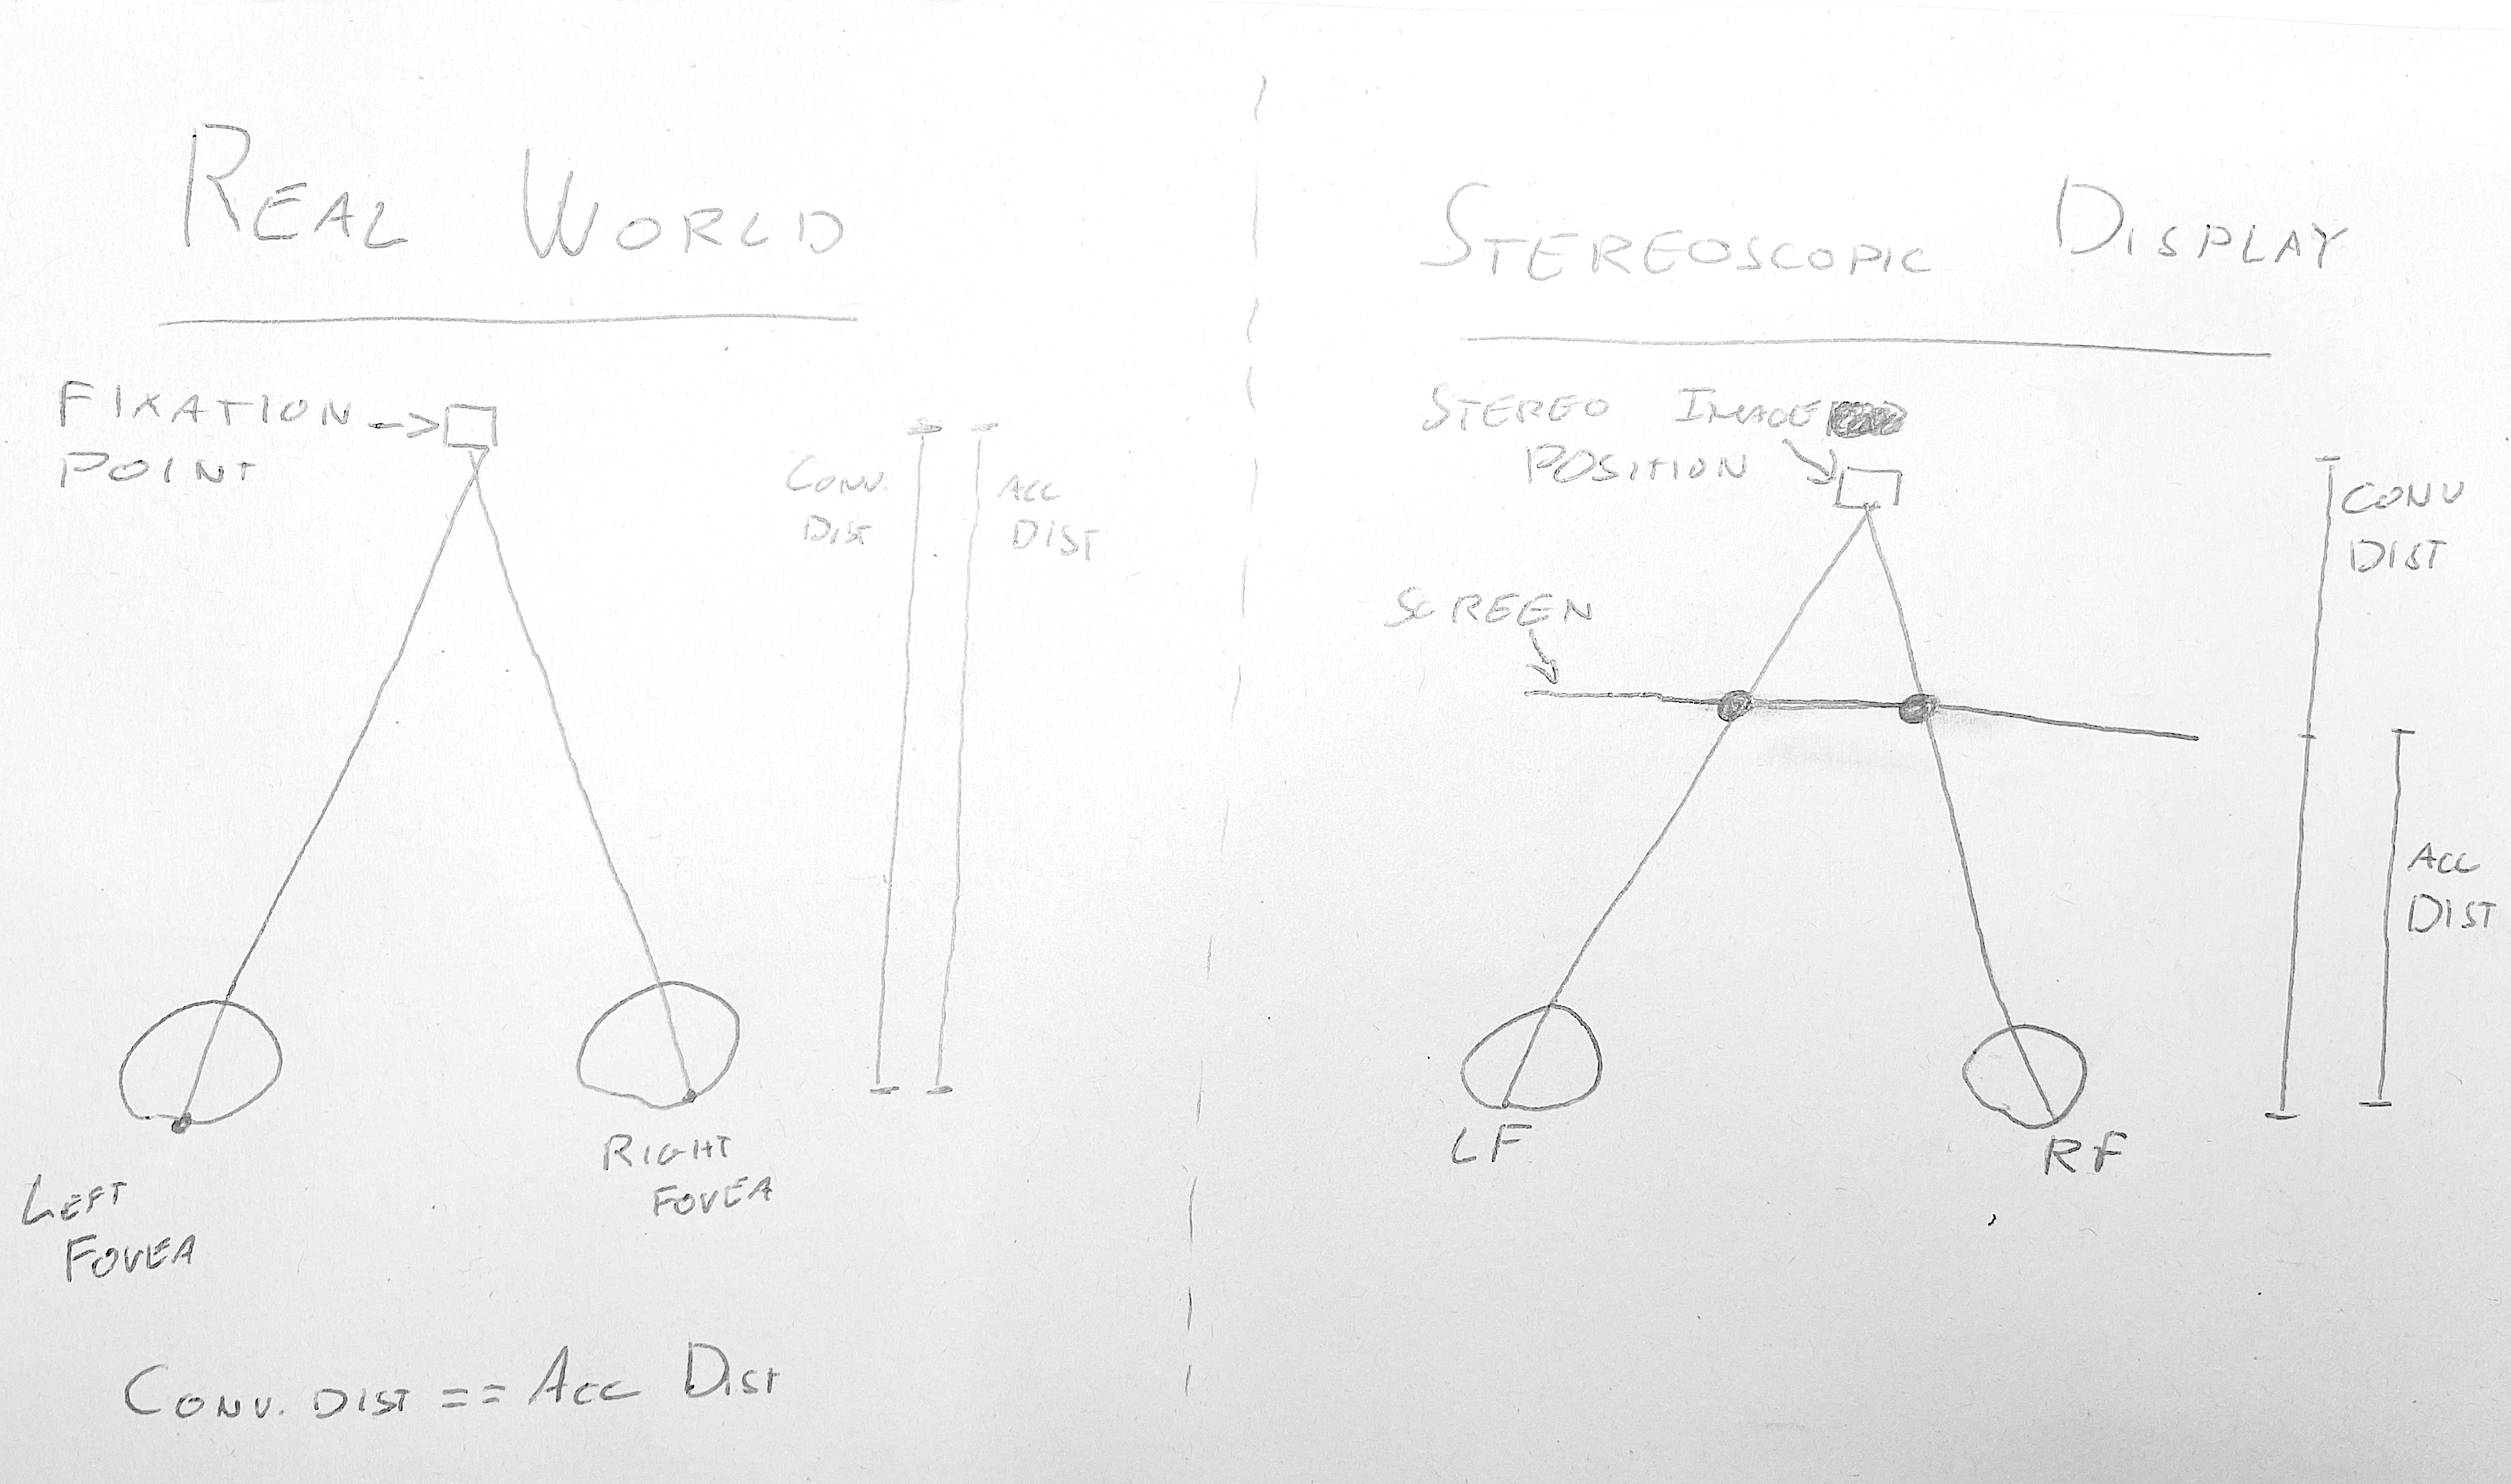 REAL WORLD
FIXATION
POINT
CONV.
DIST
ACC
DIST
LEFT
FOVEA
RIGHT
FOVEA
CONV. DIST == ACC DIST
STEREOSCOPIC DISPLAY
STEREO IMAGE
POSITION
SCREEN
CONV
DIST
ACC
DIST
LF
RF